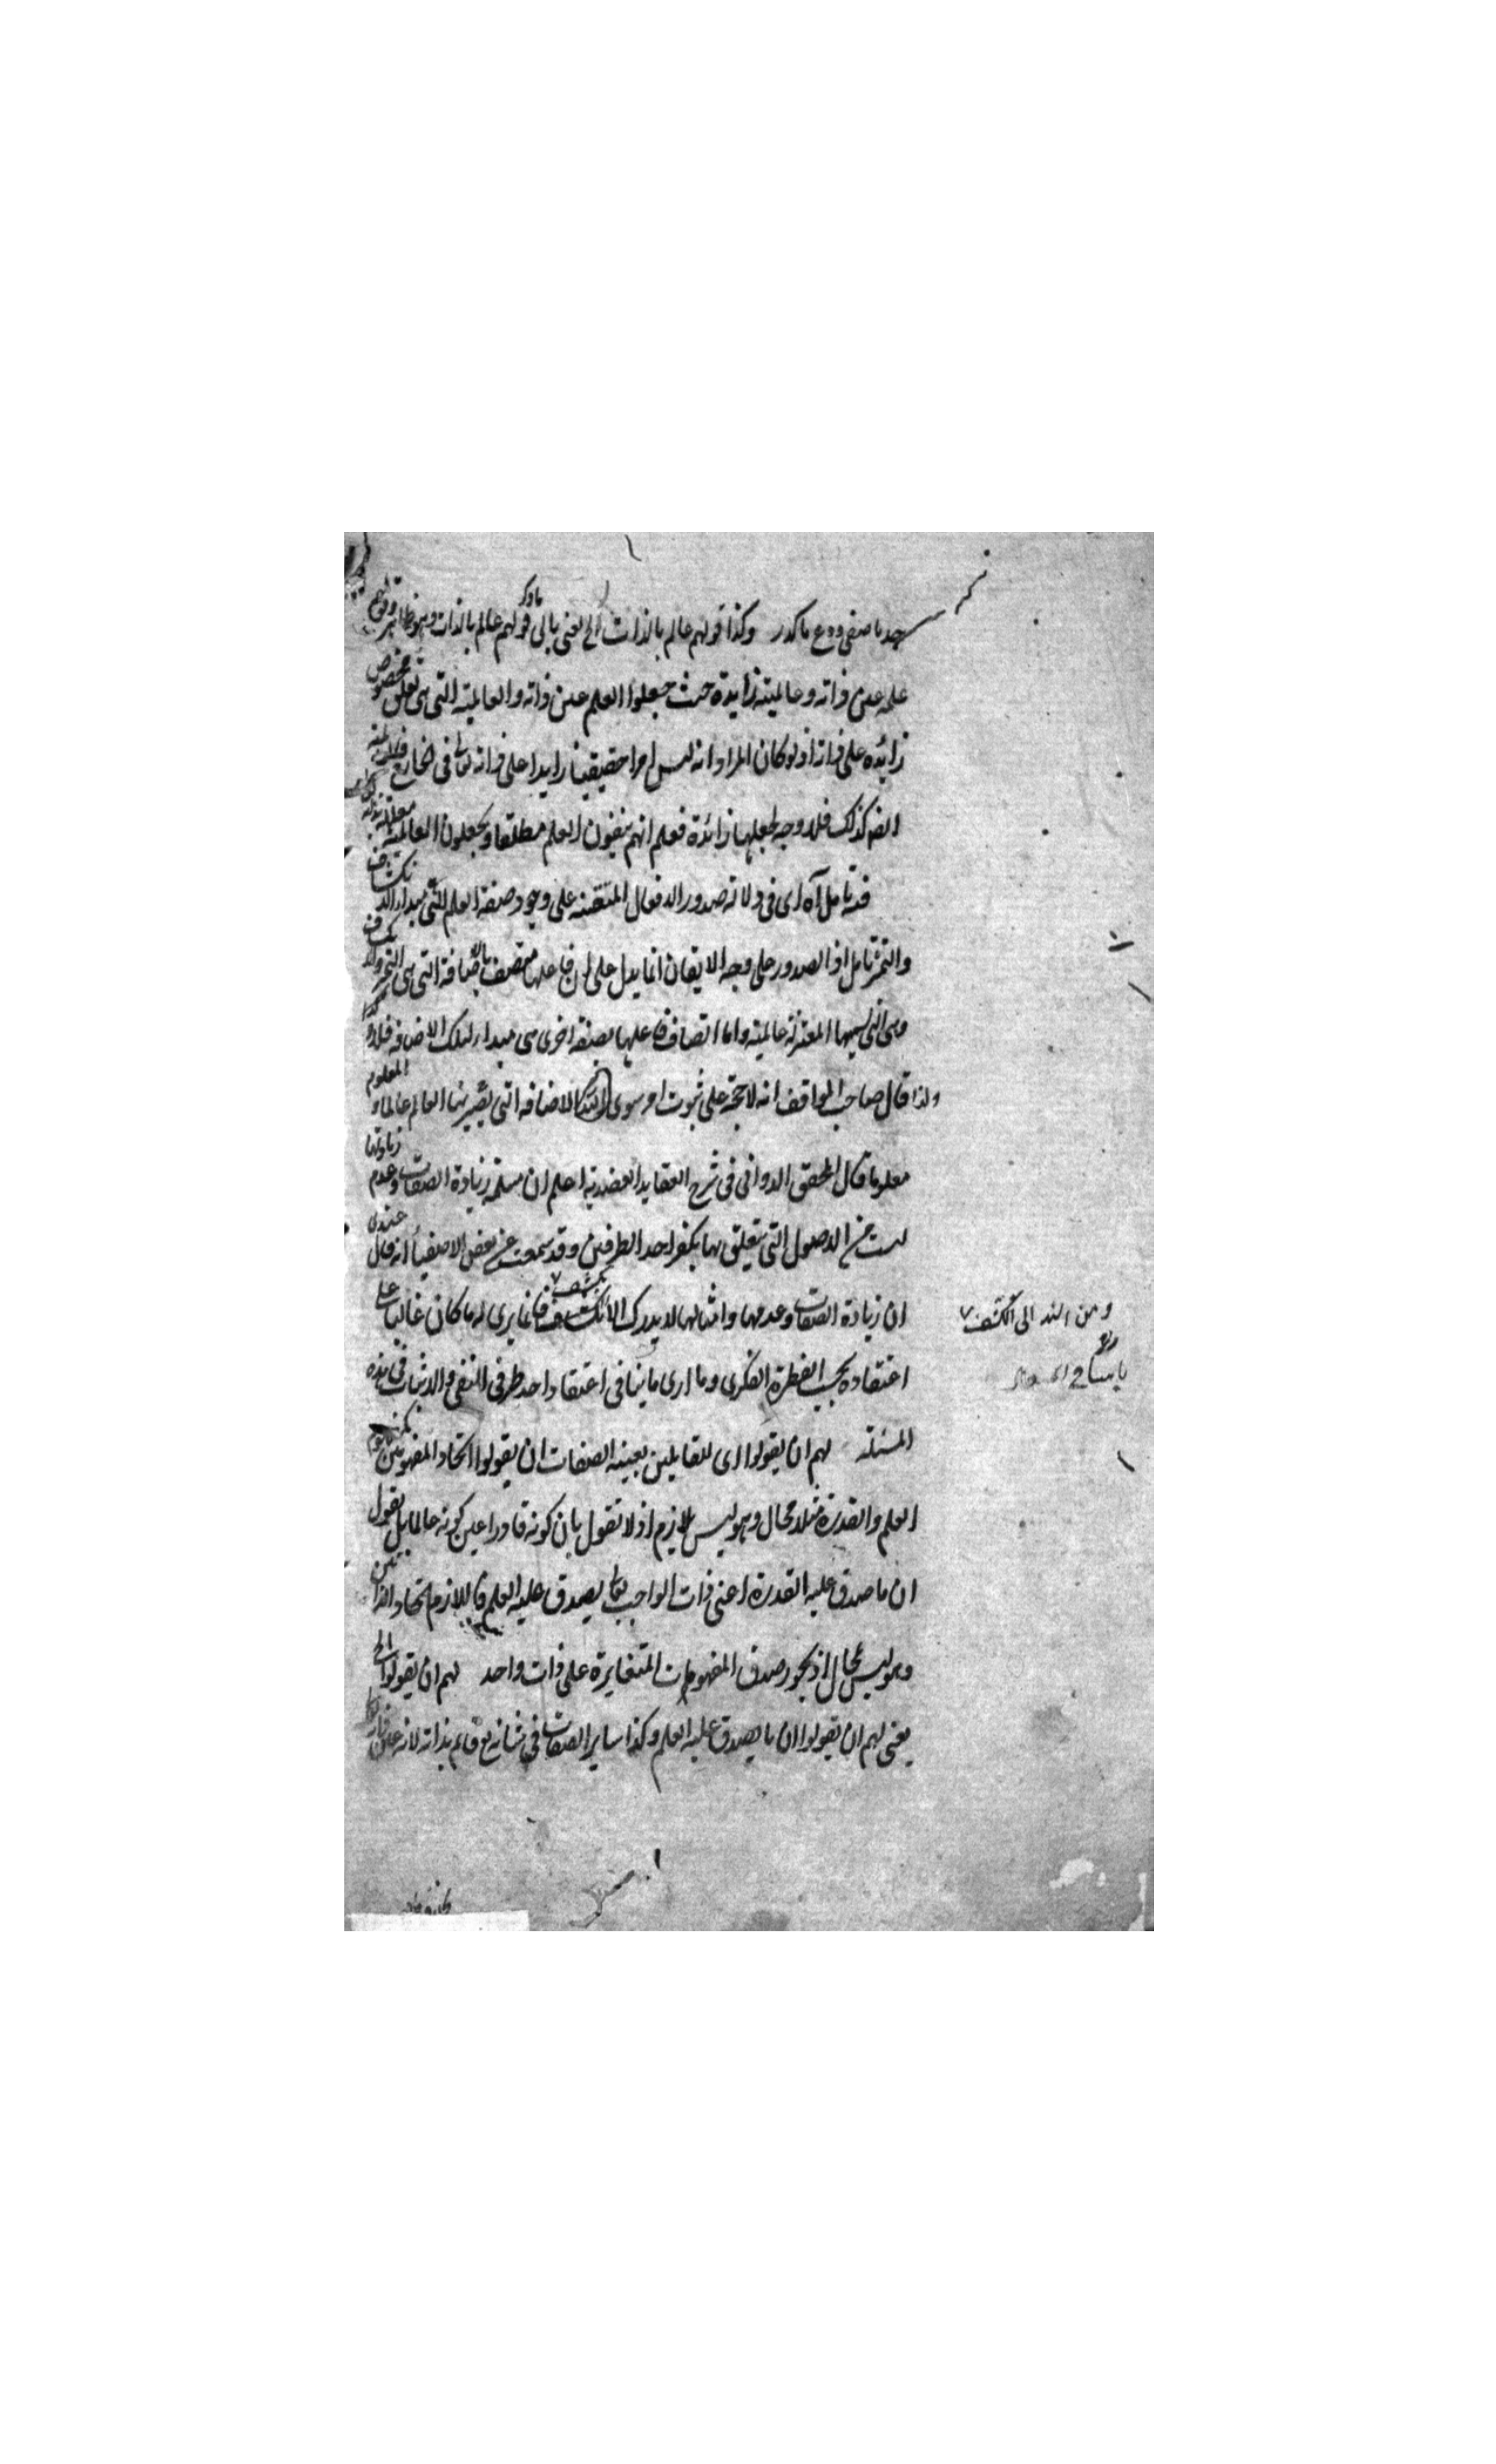 خد ما صفى ودع ما كدر وكذا قولهم عالم بالذات الخ يعنى يابى قولهم عالم بالذات وهو ظاهر
علمه عين ذاته وعالميته زايدة حيث جعلوا العلم عين ذاته والعالمية التى هى تعلق مخصوص
زائده على ذاته اذ لو كان المراد انه ليس امرا حقيقيا زايدا على ذاته تعالى فى الخارج فالعالمية
ايضا كذلك فلا وجه لجعلها زائدة فعلم انهم ينفون العلم مطلقا ويجعلون العالمية معللة بذاته
فيه تامل آه اى فى دلالة صدور الافعال المتقنه على وجود صفة العلم التى هى مبدأ الانكشاف
والتميز تامل اذ الصدور على وجه الاتقان انما يدل على ان فاعلها متصف بالاضافة التى هى التميز والانكشاف
وهى التى تسميها المعتزلة عالمية واما اتصاف فاعلها بصفة اخرى هى مبداء لتلك الاضافه فلا
ولذا قال صاحب المواقف انه لا حجة على ثبوت امر سوى الاضافه التى يصير بها العالم عالما و المعلوم
معلوما قال المحقق الدوانى فى شرح العقايد العضدية اعلم ان مسئلة زيادة الصفات وعدم زيادتها
ليست من الاصول التى يتعلق بها تكفير احد الطرفين وقد سمعت عن بعض الاصفيا انه قال عندى
ان زيادة الصفات وعدمها وامثالها لا يدرك الا بكشف فانما يرى له ما كان غالبا على
اعتقاده بحسب الفطرة الفكرى وما ارى ما ينافى اعتقاد احد طرفى النفى والاثبات فى هذه
المسئلة لهم ان يقولوا اى للقايلين بعينية الصفات ان يقولوا اتحاد المفهومين
العلم والقدرة مثلا محال وهو ليس بلازم اذ لا نقول بان كونه قادرا عين كونه عالما بل نقول
ان ما صدق عليه القدرة اعنى ذات الواجب تعالى يصدق عليه العلم فاللازم اتحاد الذاتين
وهو ليس بمحال اذ يجوز صدق المفهومات المتغايرة على ذات واحد لهم ان يقولوا الخ
يعنى لهم ان يقولوا ان ما يصدق عليه العلم وكذا ساير الصفات فى شانه تع قايم بذاته لانه عين ذاته
ومن اسند الى الكشف